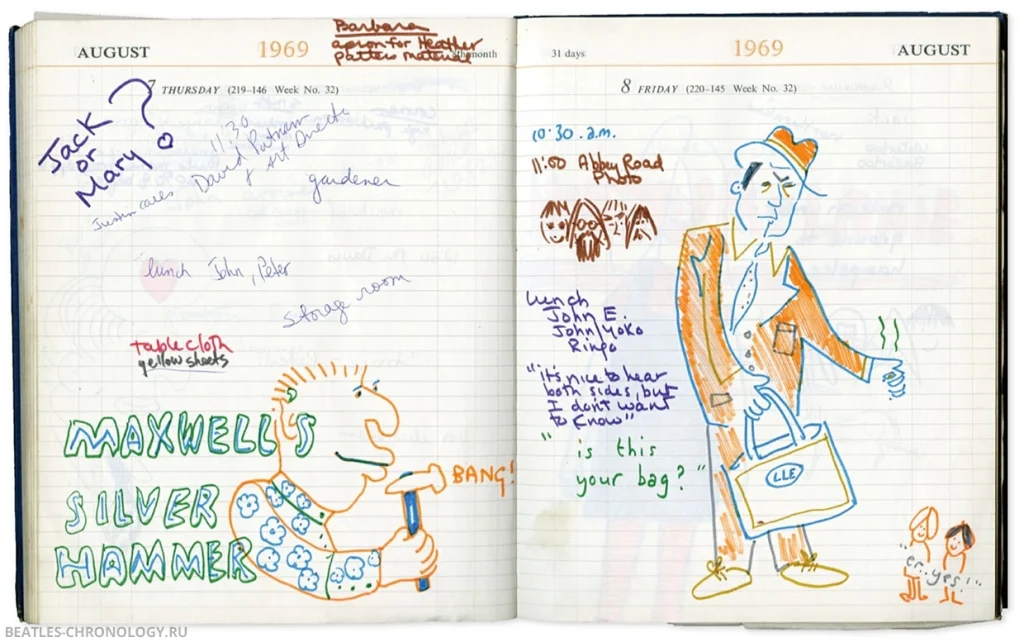 AUGUST
1969
Barbara
apron for Heather
pattern material
8th month
7 THURSDAY (219–146 Week No. 32)
Jack
or
Mary?
11:30
David Putnam
+ Art Director
Justin calls
gardener
lunch John, Peter
storage room
table cloth
yellow sheets
MAXWELL'S
SILVER
HAMMER
BANG!
31 days
1969
AUGUST
8 FRIDAY (220–145 Week No. 32)
10·30 a.m.
11:00 Abbey Road
Photo
lunch
John E.
John/Yoko
Ringo
"it's nice to hear
both sides, but
I don't want
to know"
" is this
your bag? "
LLE
"er..yes!"
BEATLES-CHRONOLOGY.RU